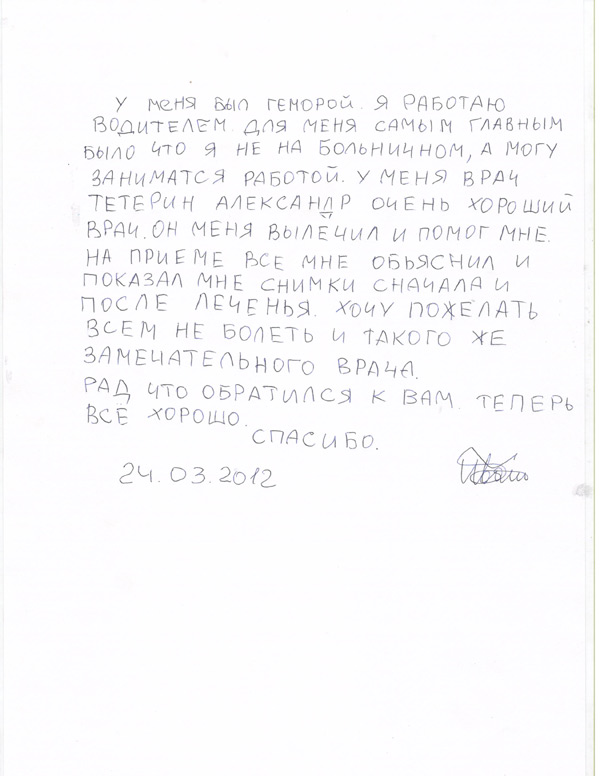 У МЕНЯ БЫЛ ГЕМОРОЙ. Я РАБОТАЮ
ВОДИТЕЛЕМ. ДЛЯ МЕНЯ САМЫМ ГЛАВНЫМ
БЫЛО ЧТО Я НЕ НА БОЛЬНИЧНОМ, А МОГУ
ЗАНИМАТСЯ РАБОТОЙ. У МЕНЯ ВРАЧ
ТЕТЕРИН АЛЕКСАНДР ОЧЕНЬ ХОРОШИЙ
ВРАЧ. ОН МЕНЯ ВЫЛЕЧИЛ И ПОМОГ МНЕ.
НА ПРИЕМЕ ВСЕ МНЕ ОБЬЯСНИЛ И
ПОКАЗАЛ МНЕ СНИМКИ СНАЧАЛА И
ПОСЛЕ ЛЕЧЕНЬЯ. ХОЧУ ПОЖЕЛАТЬ
ВСЕМ НЕ БОЛЕТЬ И ТАКОГО ЖЕ
ЗАМЕЧАТЕЛЬНОГО ВРАЧА.
РАД ЧТО ОБРАТИЛСЯ К ВАМ. ТЕПЕРЬ
ВСЁ ХОРОШО.
СПАСИБО.
24.03.2012